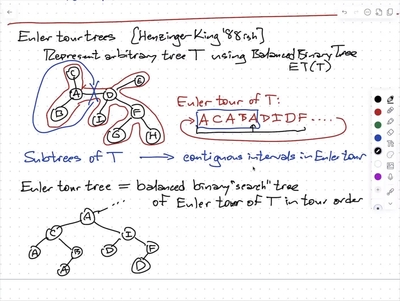 Euler tour trees [Henzinger-King '88ish]
Represent arbitrary tree T using Balanced Binary Tree
ET(T)
C
E
A
D
B
I
F
G
H
Euler tour of T:
A C A B A D I D F ....
Subtrees of T → contiguous intervals in Euler tour
Euler tour tree = balanced binary "search" tree
of Euler tour of T in tour order
A ...
C
I
A
B
D
F
A
D